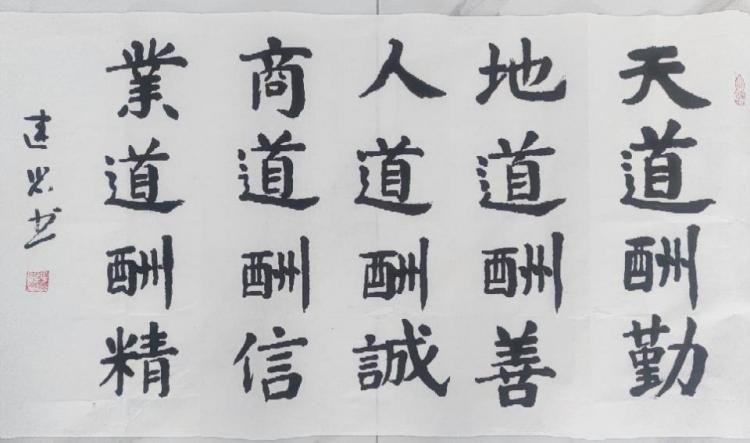 天道酬勤
地道酬善
人道酬誠
商道酬信
業道酬精